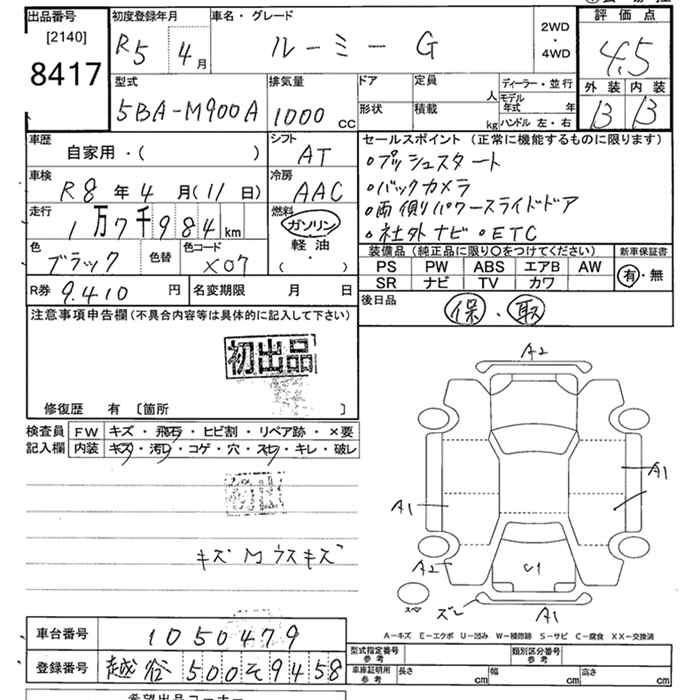 出品番号
[2140]
8417
初度登録年月
R5 4月
車名・グレード
ルーミー G
2WD
・
4WD
評価点
4.5
外装 内装
B B
型式
5BA-M900A
排気量
1000 cc
ドア
形状
定員 人
積載 kg
ディーラー・並行
モデル年式 年
ハンドル 左・右
車歴
自家用・( )
シフト
AT
車検
R8年4月(11日)
冷房
AAC
走行
1万7千984km
燃料
ガソリン
軽油
( ・ )
色
ブラック
色替
色コード
X07
R券 9.410 円
名変期限 月 日
セールスポイント (正常に機能するものに限ります)
・プッシュスタート
・バックカメラ
・両側パワースライドドア
・社外ナビ ・ETC
装備品(純正品に限り○をつけてください)
PS PW ABS エアB AW
SR ナビ TV カワ
新車保証書
有・無
後日品
保・取
注意事項申告欄(不具合内容等は具体的に記入して下さい)
初出品
修復歴 有 〔箇所 〕
検査員記入欄
FW キズ・飛石・ヒビ割・リペア跡・×要
内装 キズ・汚れ・コゲ・穴・スレ・キレ・破レ
キズ M ウスキズ
A2
A1
A1
A2
U1
ズレ
A1
A-キズ E-エクボ U-凹み W-補修跡 S-サビ C-腐食 XX-交換済
車台番号 1050479
登録番号 越谷 500 そ 9458
型式指定番号 参考
類別区分番号 参考
車庫証明用 参考
長さ cm
幅 cm
高さ cm
希望出品コーナー